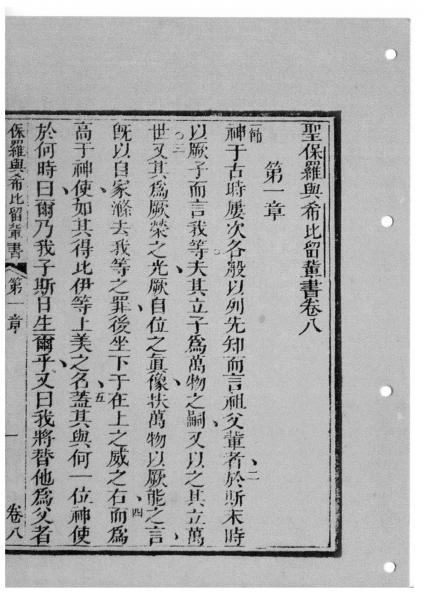 聖保羅與希比留輩書卷八
第一章
一節
神于古時屢次各般以列先知而言祖父輩者於斯末時
二
以厥子而言我等夫其立子爲萬物之嗣又以之其立萬
三
世又其爲厥榮之光厥自位之眞像扶萬物以厥能之言
既以自家滌去我等之罪後坐下于在上之威之右而爲
四
高于神使如其得比伊等上美之名蓋其與何一位神使
五
於何時曰爾乃我子斯日生爾乎又曰我將替他爲父者
保羅與希比留輩書 第一章 一 卷八